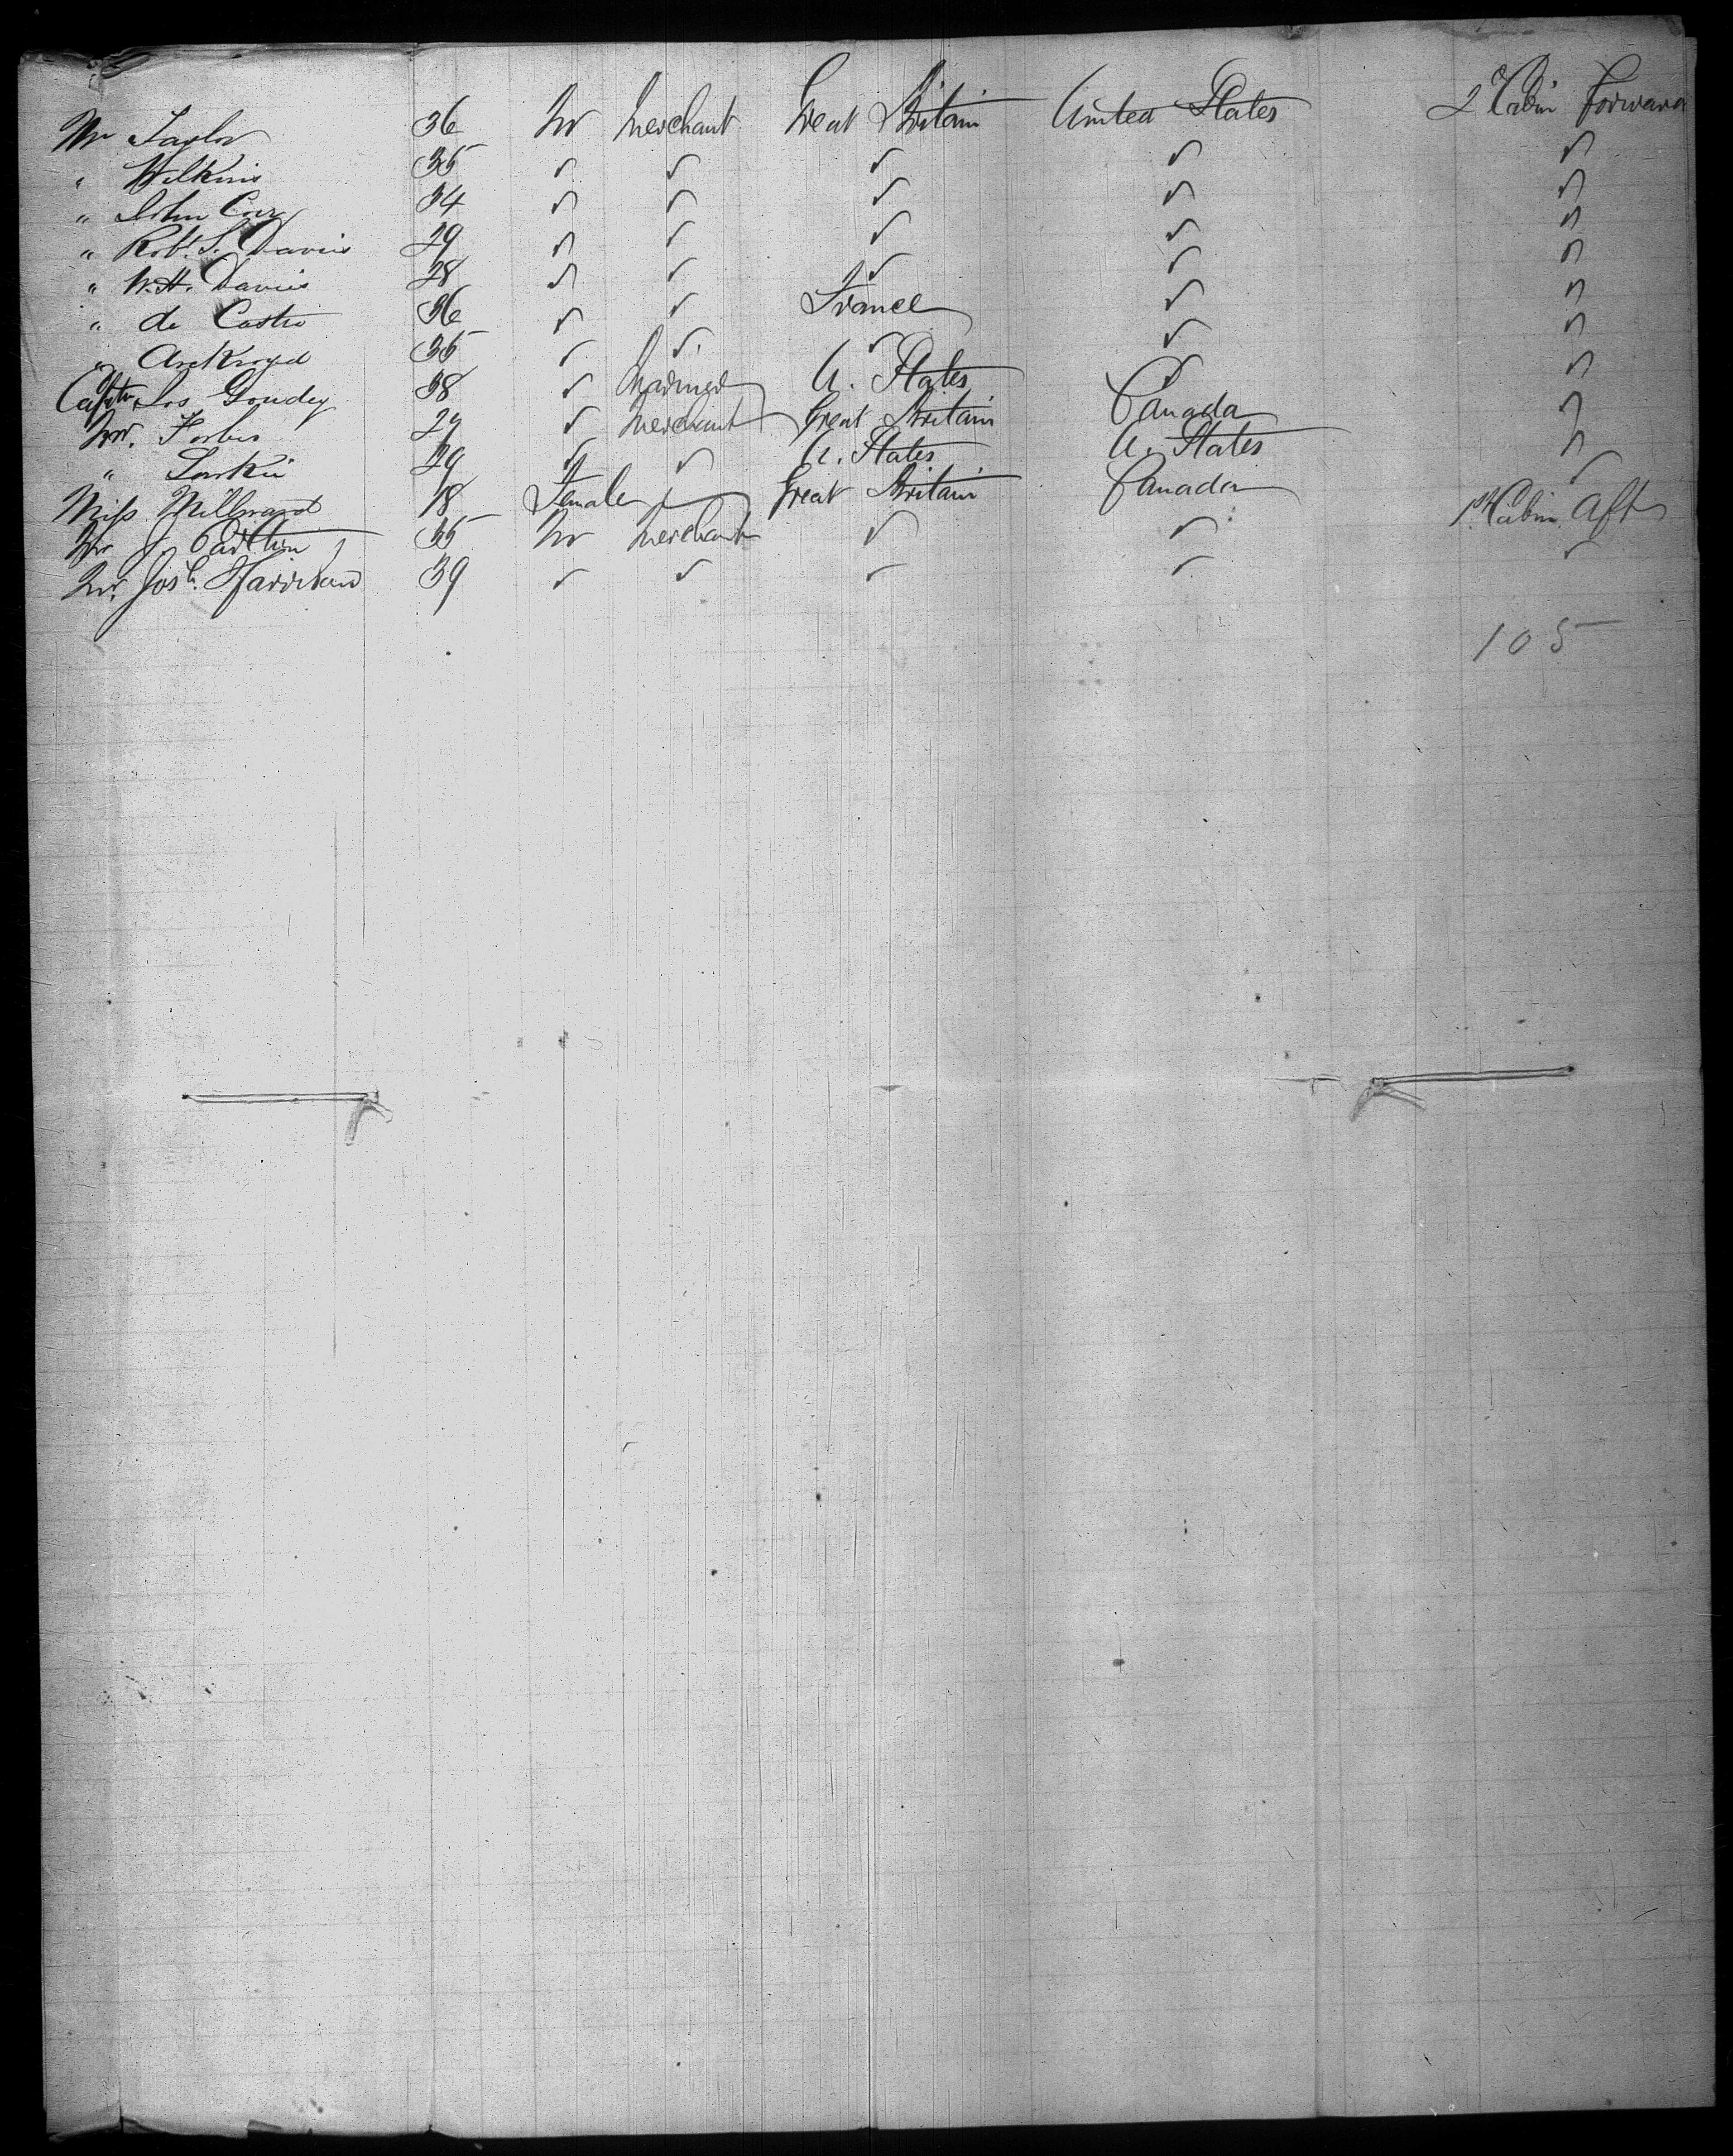 Mr Taylor 36 M Merchant Great Britain United States 2 Cabin Forward
" Wilkins 35 ✓ ✓ ✓ ✓ ✓
" John Cox 34 ✓ ✓ ✓ ✓ ✓
" Robt. S. Davies 29 ✓ ✓ ✓ ✓ ✓
" W.H. Davies 28 ✓ ✓ ✓ ✓ ✓
" de Castro 36 ✓ ✓ France ✓ ✓
" Arckroyd 35 ✓ ✓ ✓ ✓ ✓
Captn Jos Goudey 38 ✓ Mariner U. States ✓ ✓
Mr. Forbes 29 ✓ Merchant Great Britain Canada ✓
" Larkin 29 ✓ ✓ U. States U. States ✓
Miss Millward 18 Female Great Britain Canada ✓
Mr J. 35 M Merchant ✓ ✓ 1st Cabin Aft
Mr. Josh. 39 ✓ ✓ ✓ ✓ ✓
105